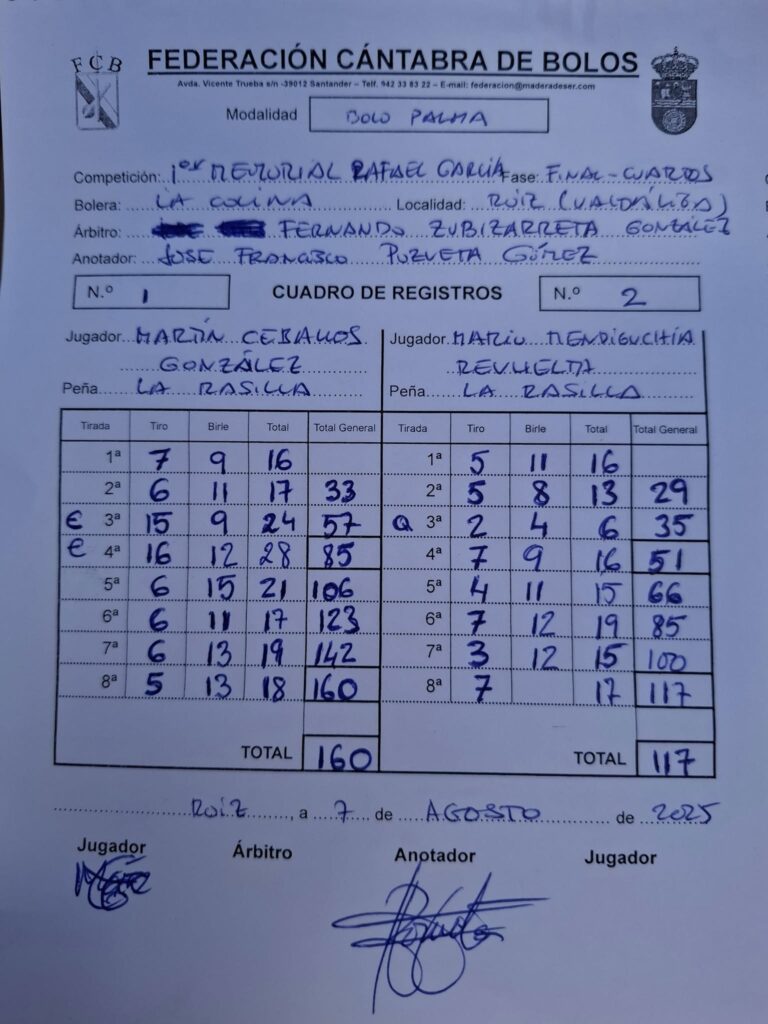 FCB
FEDERACIÓN CÁNTABRA DE BOLOS
Avda. Vicente Trueba s/n -39012 Santander – Telf. 942 33 83 22 – E-mail: federacion@maderadeser.com
Modalidad BOLO PALMA
Competición: 1er MEMORIAL RAFAEL GARCÍA Fase: FINAL-CUARTOS
Bolera: LA COLINA Localidad: RUIZ (VALDÁLIGA)
Árbitro: FERNANDO ZUBIZARRETA GONZÁLEZ
Anotador: JOSE FRANCISCO PUZUETA GÓMEZ
N.º 1 CUADRO DE REGISTROS N.º 2
Jugador MARTÍN CEBALLOS Jugador MARIO MENDIGUCHÍA
GONZÁLEZ REVUELTA
Peña LA RASILLA Peña LA RASILLA
Tirada Tiro Birle Total Total General Tirada Tiro Birle Total Total General
1ª 7 9 16 1ª 5 11 16
2ª 6 11 17 33 2ª 5 8 13 29
E 3ª 15 9 24 57 Q 3ª 2 4 6 35
E 4ª 16 12 28 85 4ª 7 9 16 51
5ª 6 15 21 106 5ª 4 11 15 66
6ª 6 11 17 123 6ª 7 12 19 85
7ª 6 13 19 142 7ª 3 12 15 100
8ª 5 13 18 160 8ª 7 17 117
TOTAL 160 TOTAL 117
ROIZ, a 7 de AGOSTO de 2025
Jugador Árbitro Anotador Jugador